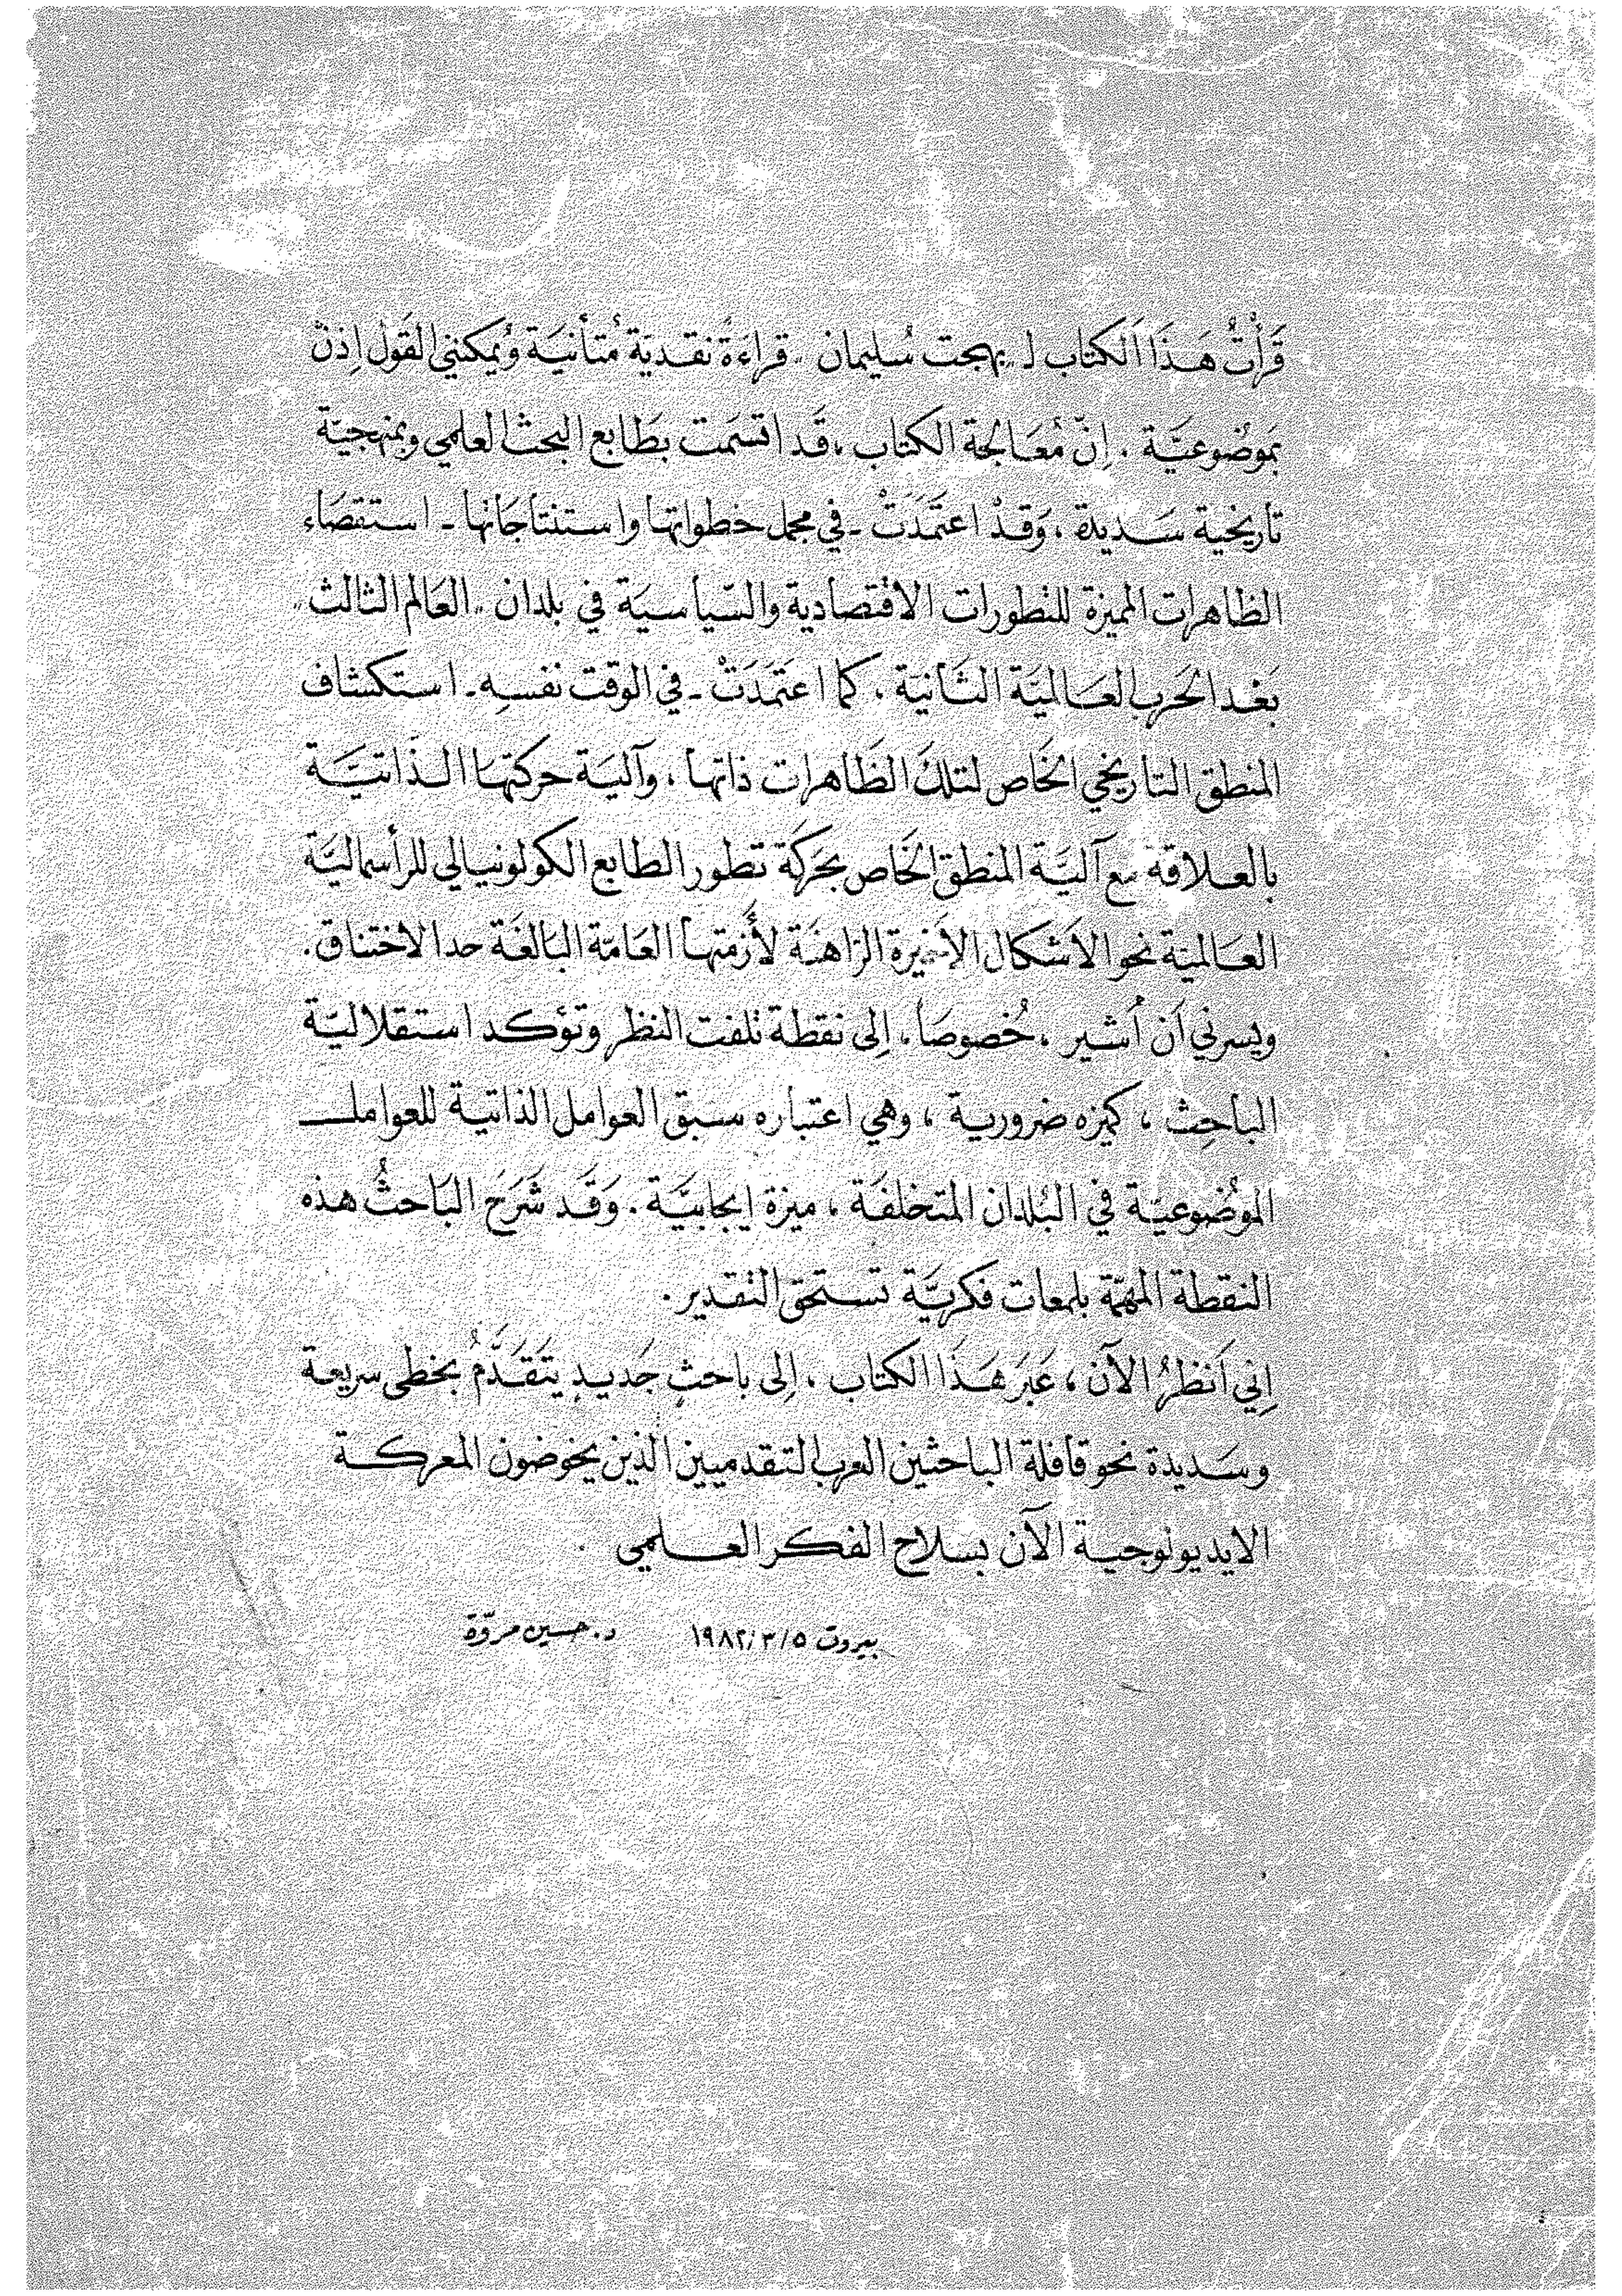 قَرَأتُ هَذَا الكتاب لـ "بهجت سُليمان" قراءَةً نقديَة مُتأنيَة وُيمكنني القَول إذنْ
بمَوضُوعيَّة . إنّ مُعَالجة الكتاب ، قَد اتسَمت بطَابع البحث العلمي وبمنهجيّة
تاريخية سَديدة ، وَقدْ اعتَمَدَتْ - في مجمل خطواتها واستنتاجَاتها - استقصَاء
الظاهرات المميزة للتطورات الاقتصادية والسّياسيَة في بلدان "العَالم الثالث"
بَعْد الحَرب العَالميَة الثَانيَة . كما اعتَمَدَتْ - في الوقت نفسِه - استكشاف
المنطق التاريخي الخَاص لتلكَ الظَاهرات ذاتها ، وآليَة حركتهَا الذَاتيَّة
بالعلاقة مع آليَّة المنطق الخَاص بحَركَة تطور الطابع الكولونيالي للرأسماليَّة
العَالميَة نحو الأشكال الأخيرة الرَاهنَة لأزمتها العَامَة البَالغَة حد الاختناق.
ويسرني أن أشير ، خُصوصَاً ، إلى نقطة تلفت النظر وتؤكد استقلاليَّة
الباحِث ، كميزه ضرورية ، وهي اعتباره سبق العوامل الذاتية للعوامل
الموضُوعيَّة في البُلدان المتخلفَة ، ميزة إيجابيَّة . وَقَد شَرَحَ البَاحثُ هذه
النقطة المهمّة بلمعات فكريَّة تستحق التقدير .
إني أنظرُ الآن ، عَبَر هَذَا الكتاب ، إلى باحثٍ جَديدٍ يتَقَدَّمُ بخطى سريعة
وسَديدة نحو قافلة الباحثين العرب التقدميين الذين يخوضون المعركة
الايديولوجية الآن بسلاح الفكر العلمي
بيروت ٥/٣/١٩٨٢ د. حسين مروّة